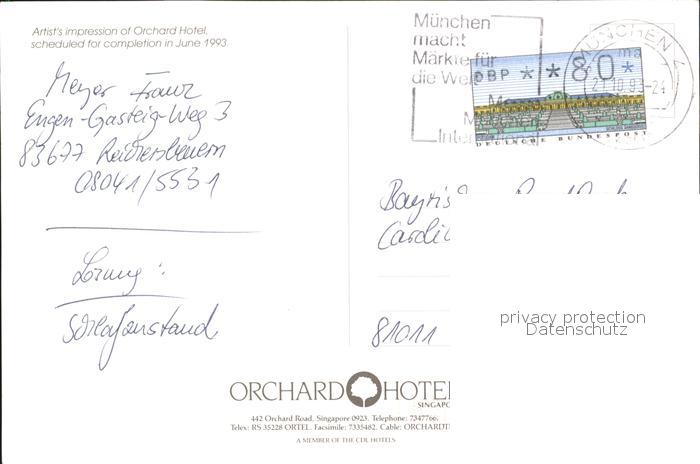 Artist's impression of Orchard Hotel,
scheduled for completion in June 1993.
Meyer Franz
Eugen-Gasteig-Weg 3
83677 Reichersbeuern
08041/5531
Lösung:
Schlafenstand
München
macht
Märkte für
die We
M
M
Inter
MÜNCHEN
21.10.93-24
DBP ** 80*
DEUTSCHE BUNDESPOST
Bayris
Cardi
81011
privacy protection
Datenschutz
ORCHARD HOTE
SINGAPO
442 Orchard Road, Singapore 0923. Telephone: 7347766.
Telex: RS 35228 ORTEL. Facsimile: 7335482. Cable: ORCHARDT
A MEMBER OF THE CDL HOTELS